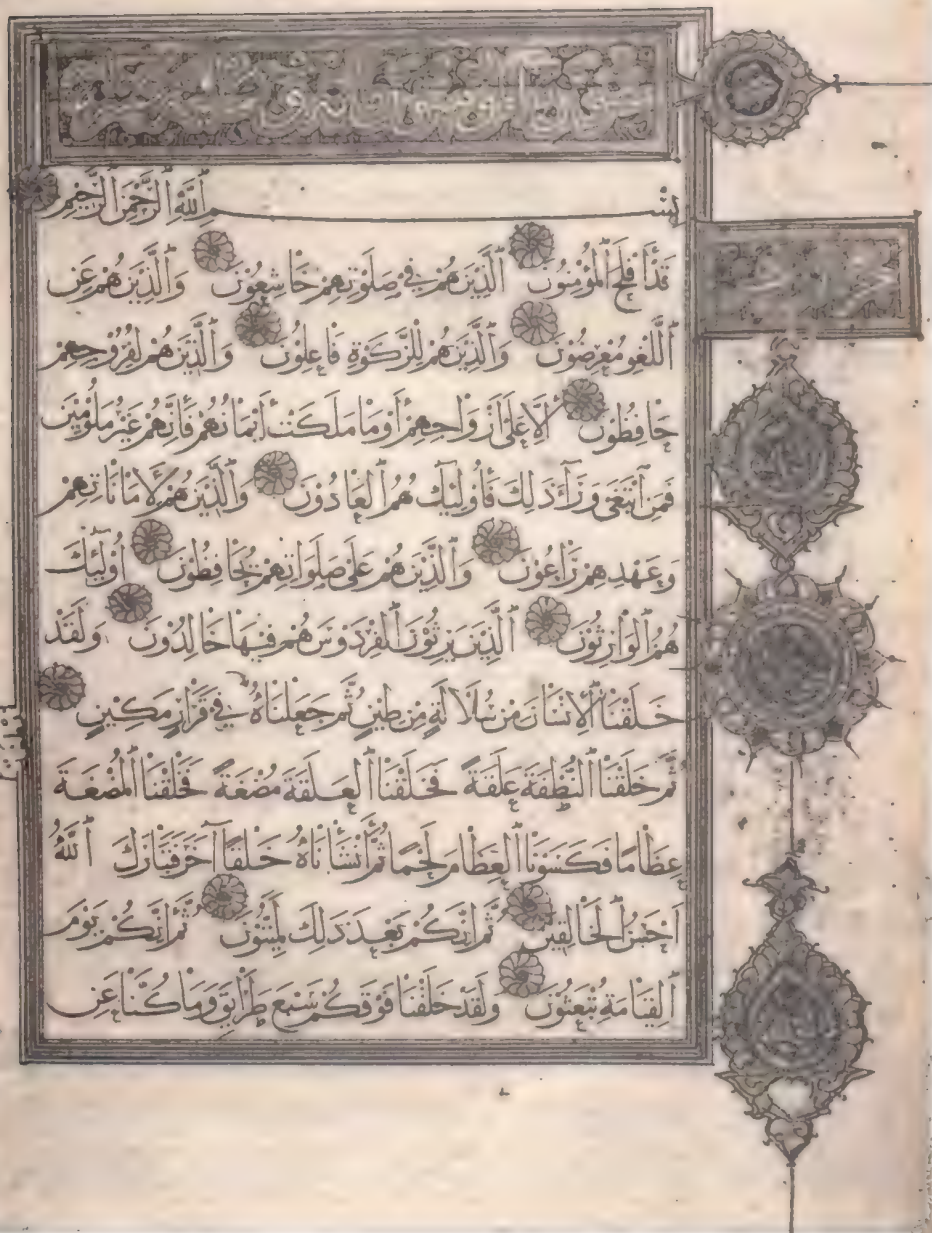 بسم الله الرحمن الرحيم
قَدْ أَفْلَحَ الْمُؤْمِنُونَ الَّذِينَ هُمْ فِي صَلَوتِهِمْ خَاشِعُونَ وَالَّذِينَ هُمْ عَنِ
اللَّغْوِ مُعْرِضُونَ وَالَّذِينَ هُمْ لِلزَّكَوةِ فَاعِلُونَ وَالَّذِينَ هُمْ لِفُرُوجِهِمْ
حَافِظُونَ إِلَّا عَلَى أَزْوَاجِهِمْ أَوْ مَا مَلَكَتْ أَيْمَانُهُمْ فَإِنَّهُمْ غَيْرُ مَلُومِينَ
فَمَنِ ابْتَغَى وَرَآءَ ذَلِكَ فَأُولَئِكَ هُمُ الْعَادُونَ وَالَّذِينَ هُمْ لِأَمَانَاتِهِمْ
وَعَهْدِهِمْ رَاعُونَ وَالَّذِينَ هُمْ عَلَى صَلَوَاتِهِمْ يُحَافِظُونَ أُولَئِكَ
هُمُ الْوَارِثُونَ الَّذِينَ يَرِثُونَ الْفِرْدَوْسَ هُمْ فِيهَا خَالِدُونَ وَلَقَدْ
خَلَقْنَا الْإِنْسَانَ مِنْ سُلَالَةٍ مِنْ طِينٍ ثُمَّ جَعَلْنَاهُ فِي قَرَارٍ مَكِينٍ
ثُمَّ خَلَقْنَا النُّطْفَةَ عَلَقَةً فَخَلَقْنَا الْعَلَقَةَ مُضْغَةً فَخَلَقْنَا الْمُضْغَةَ
عِظَامًا فَكَسَوْنَا الْعِظَامَ لَحْمًا ثُمَّ أَنْشَأْنَاهُ خَلْقًا آخَرَ فَتَبَارَكَ اللَّهُ
أَحْسَنُ الْخَالِقِينَ ثُمَّ إِنَّكُمْ بَعْدَ ذَلِكَ لَمَيِّتُونَ ثُمَّ إِنَّكُمْ يَوْمَ
الْقِيَامَةِ تُبْعَثُونَ وَلَقَدْ خَلَقْنَا فَوْقَكُمْ سَبْعَ طَرَائِقَ وَمَا كُنَّا عَنِ